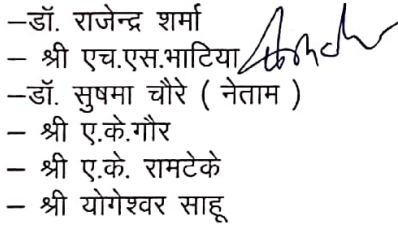 –डॉ. राजेन्द्र शर्मा
– श्री एच.एस.भाटिया
–डॉ. सुषमा चौरे ( नेताम )
– श्री ए.के.गौर
– श्री ए.के. रामटेके
– श्री योगेश्वर साहू